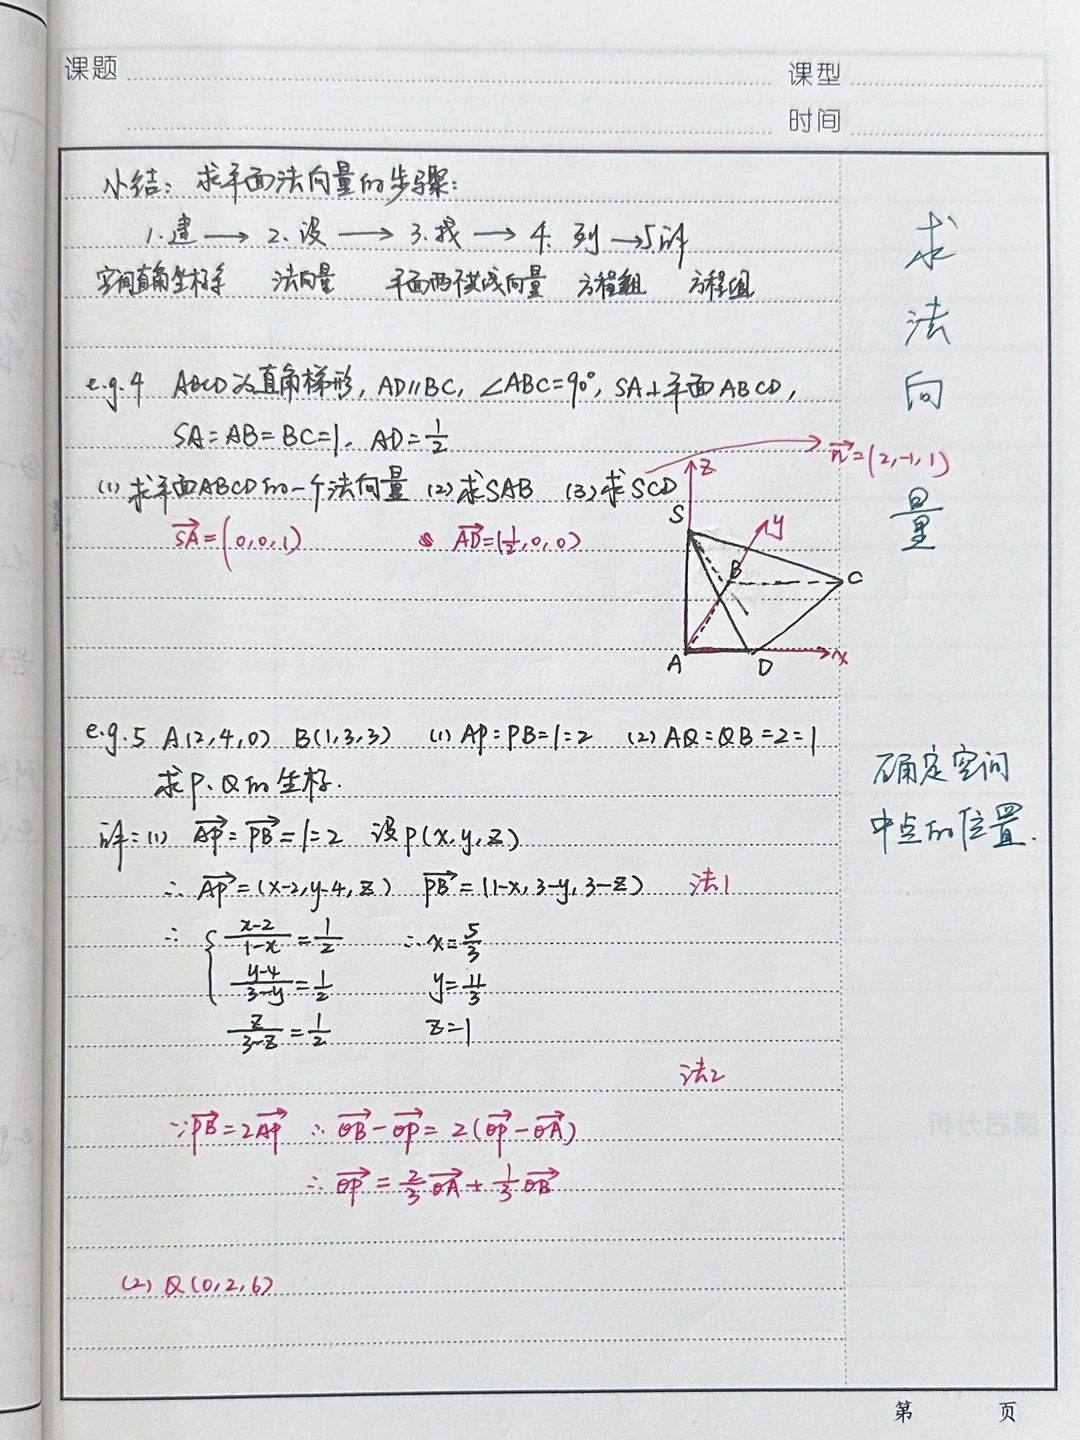 课题
课型
时间
小结：求平面法向量的步骤：
1.建 → 2.设 → 3.找 → 4.列 → 5.解
空间直角坐标系 法向量 平面两不共线向量 方程组 方程组
求法向量
e.g.4 ABCD为直角梯形，AD∥BC，∠ABC=90°，SA⊥平面ABCD，
SA=AB=BC=1，AD=1/2
(1)求平面ABCD的一个法向量 (2)求SAB (3)求SCD
→n=(2,-1,1)
→SA=(0,0,1) →AD=(1/2,0,0)
z
S
y
B
C
A
D
x
e.g.5 A(2,4,0) B(1,3,3) (1) AP:PB=1:2 (2) AQ:QB=2:1
求P、Q的坐标.
确定空间
中点的位置.
解:(1) →AP:→PB=1:2 设P(x,y,z)
∴ →AP=(x-2,y-4,z) →PB=(1-x,3-y,3-z) 法1
∴ { (x-2)/(1-x)=1/2 ∴x=5/3
(y-4)/(3-y)=1/2 y=11/3
z/(3-z)=1/2 z=1
法2
∵→PB=2→AP ∴→OB-→OP=2(→OP-→OA)
∴→OP=2/3→OA+1/3→OB
(2) Q(0,2,6)
第 页